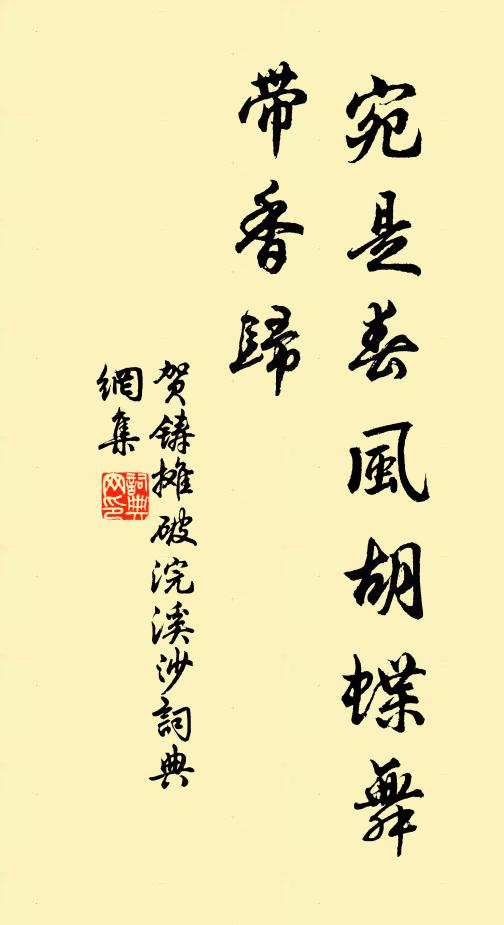 宛是春風胡蝶舞
带香歸
贺鑄攤破浣溪沙詞典
網集
詞典
网印